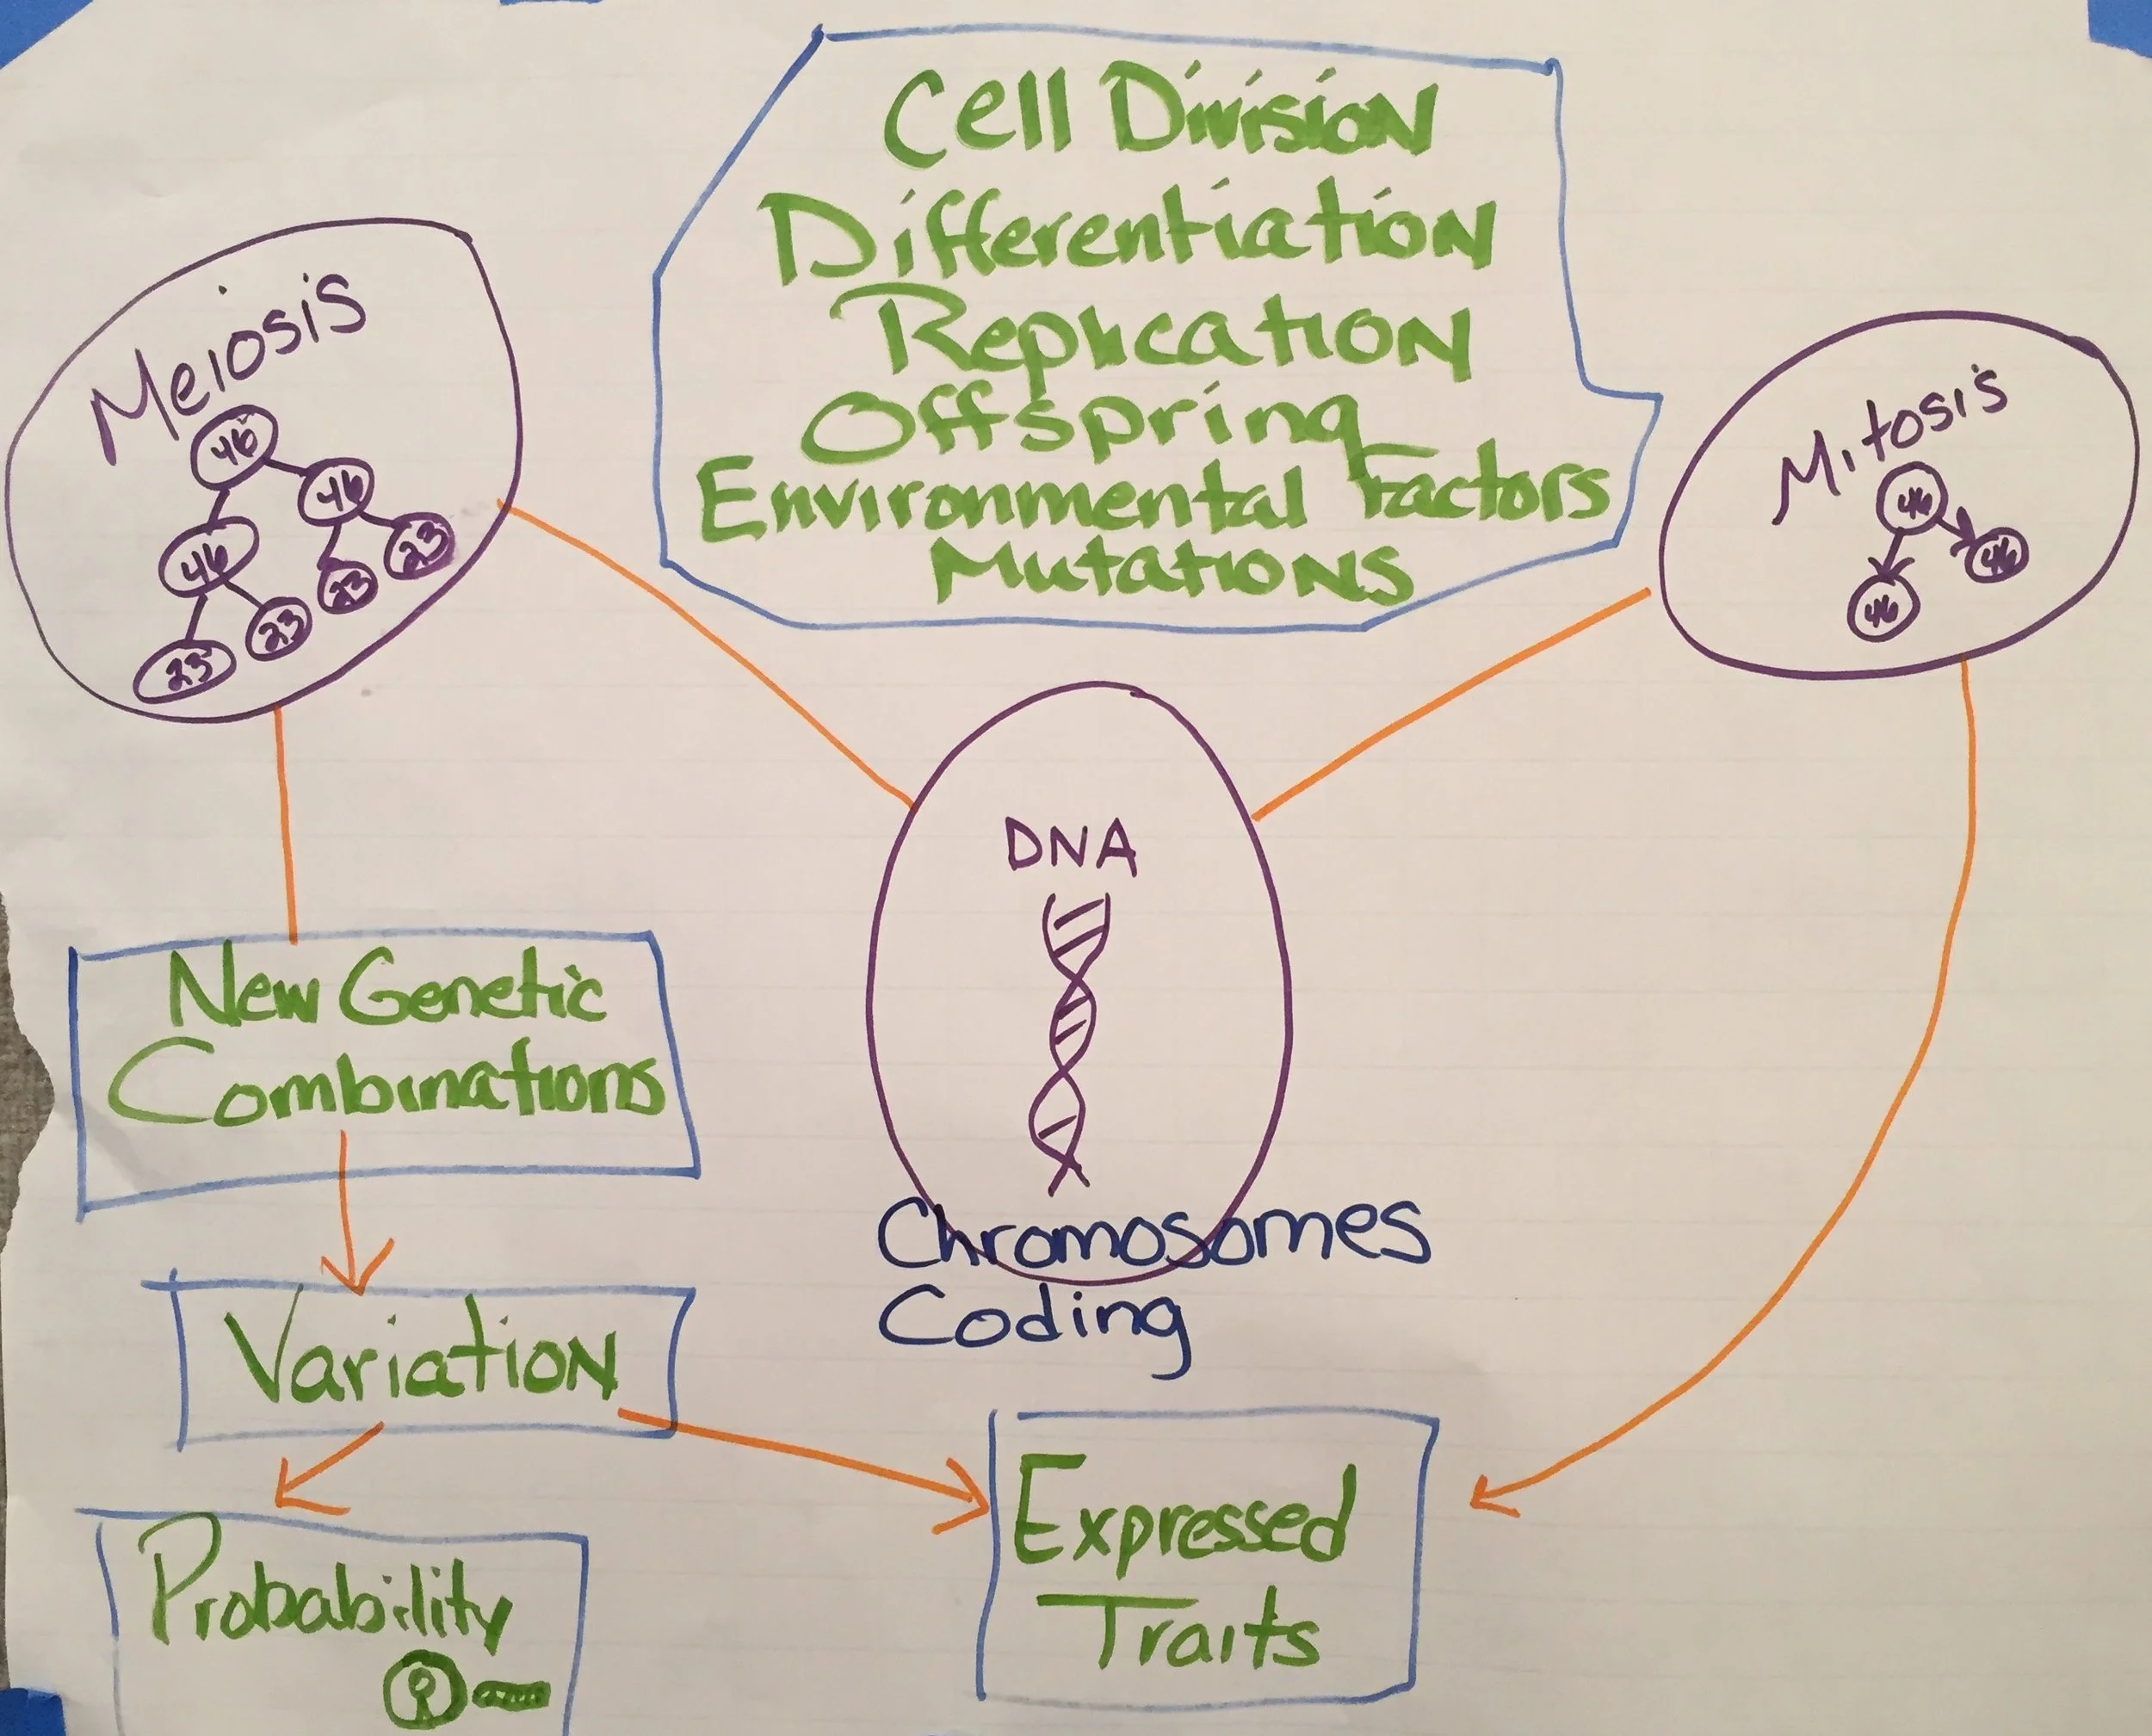 Cell Division
Differentiation
Replication
Offspring
Environmental Factors
Mutations
Meiosis
46
46
46
23
23
23
23
Mitosis
46
46
46
DNA
Chromosomes
Coding
New Genetic
Combinations
Variation
Probability
Expressed
Traits